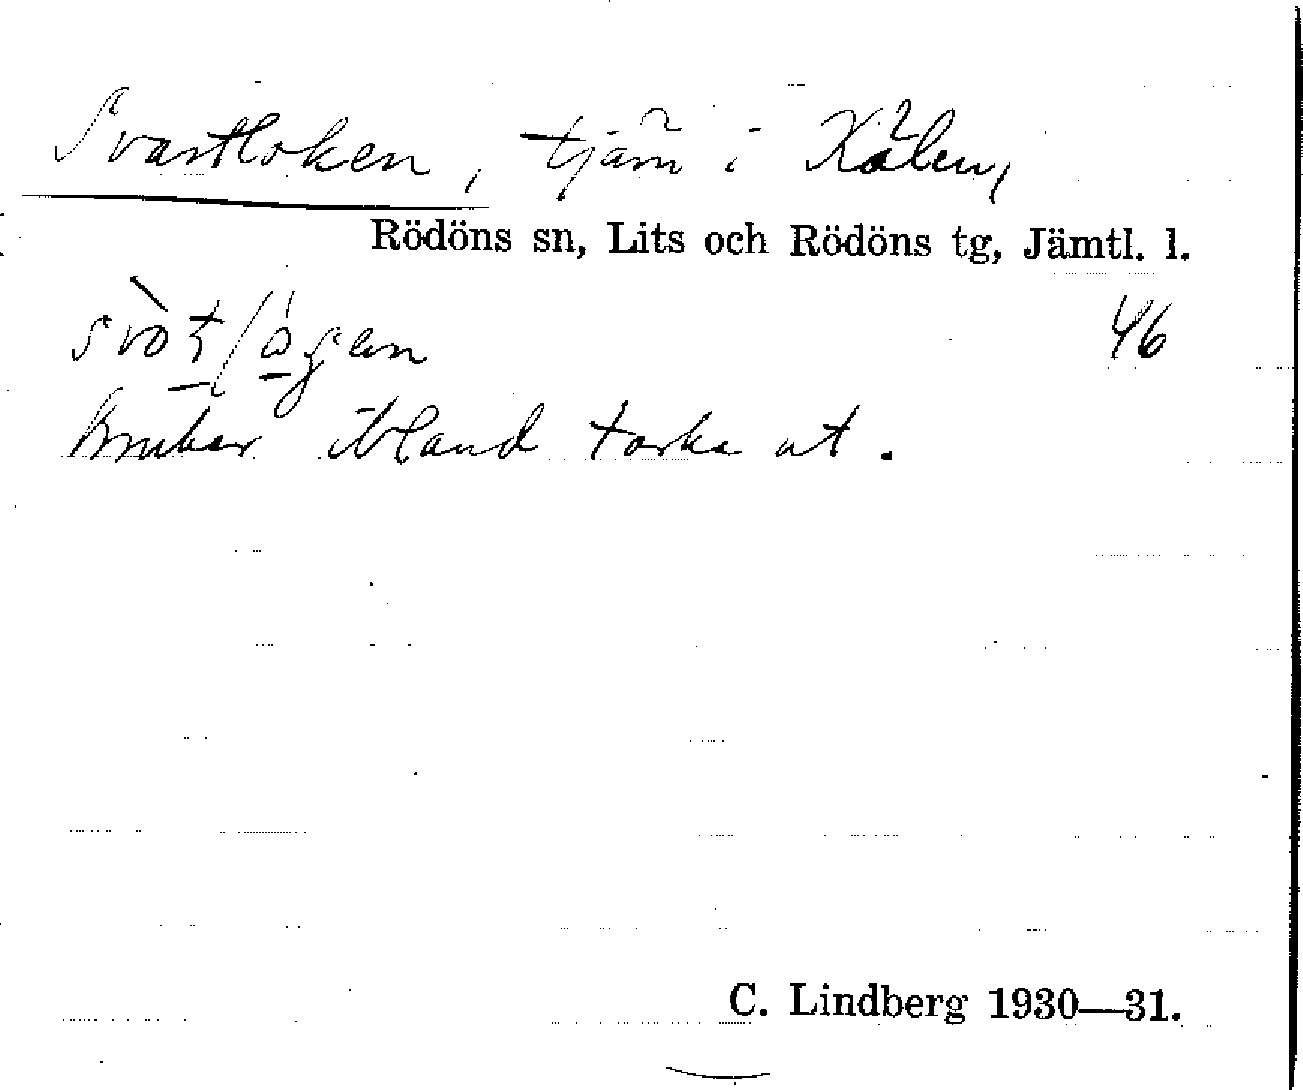 Svartloken, tjärn i Kälen,
Rödöns sn, Lits och Rödöns tg, Jämtl. l.
46
brukar ibland torka ut.
C. Lindberg 1930—31.